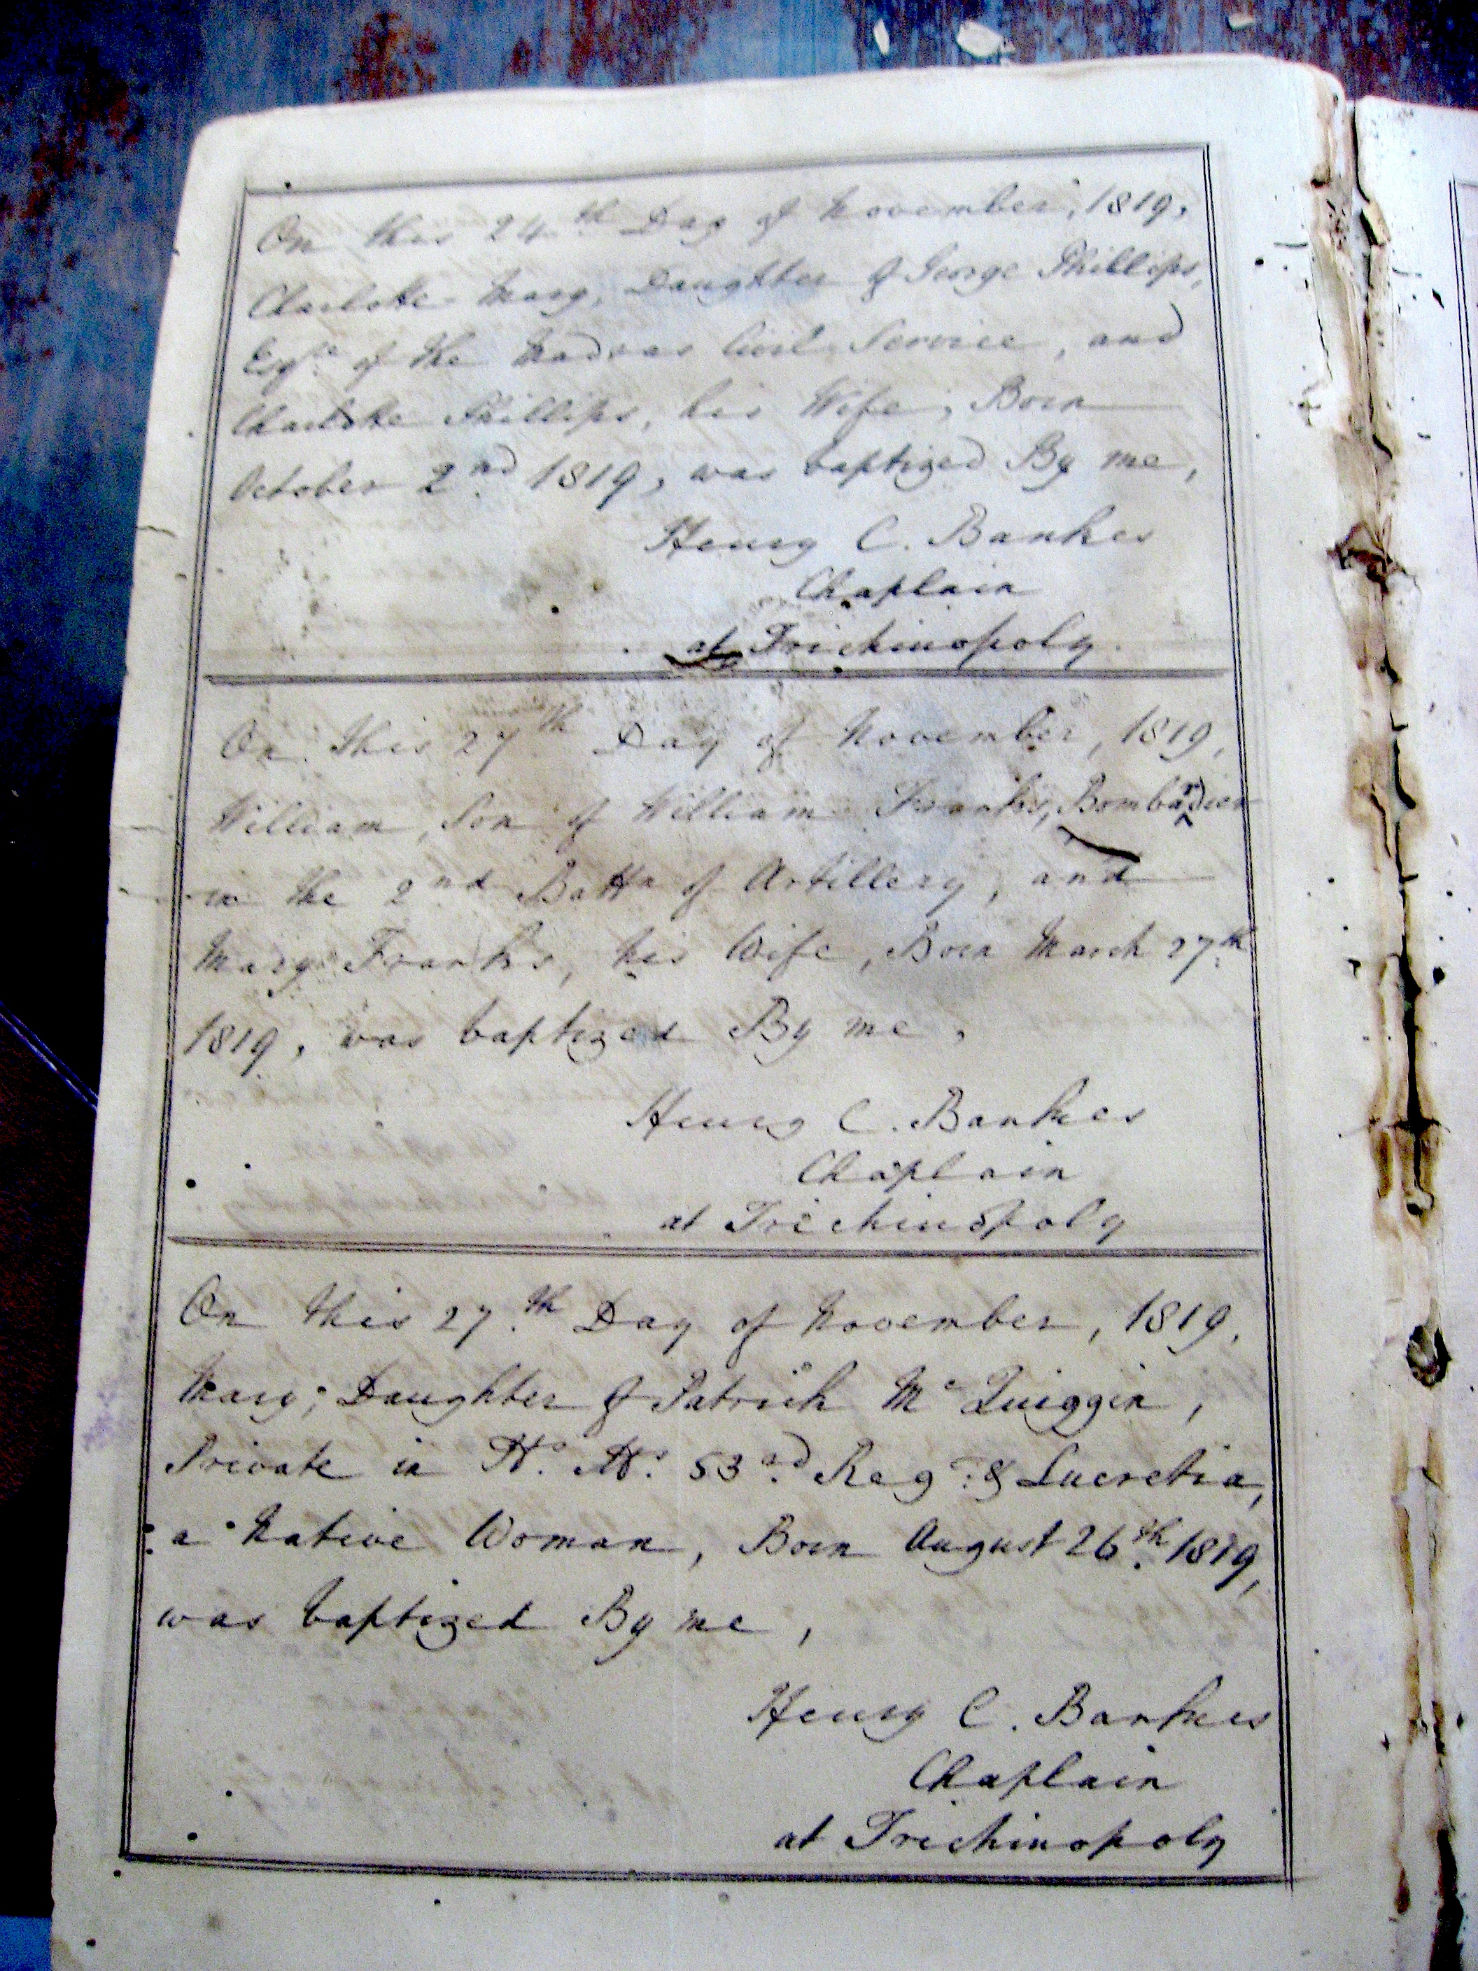 On this 24th Day of November, 1819,
Charlotte Mary, Daughter of George Phillips,
Esqre of the Madras Civil Service, and
Charlotte Phillips, his Wife, Born
October 2nd 1819, was baptized By me,
Henry C. Bankes
Chaplain
at Trichinopoly.
On this 27th Day of November, 1819,
William, Son of William Franks, Bombardier
in the 2nd Battn of Artillery, and
Mary Franks, his Wife, Born March 27th
1819, was baptized By me,
Henry C. Bankes
Chaplain
at Trichinopoly
On this 27th Day of November, 1819,
Mary, Daughter of Patrick Mc Quiggin,
Private in H. Ms. 53rd Regt. & Lucretia,
a Native Woman, Born August 26th. 1819,
was baptized By me,
Henry C. Bankes
Chaplain
at Trichinopoly